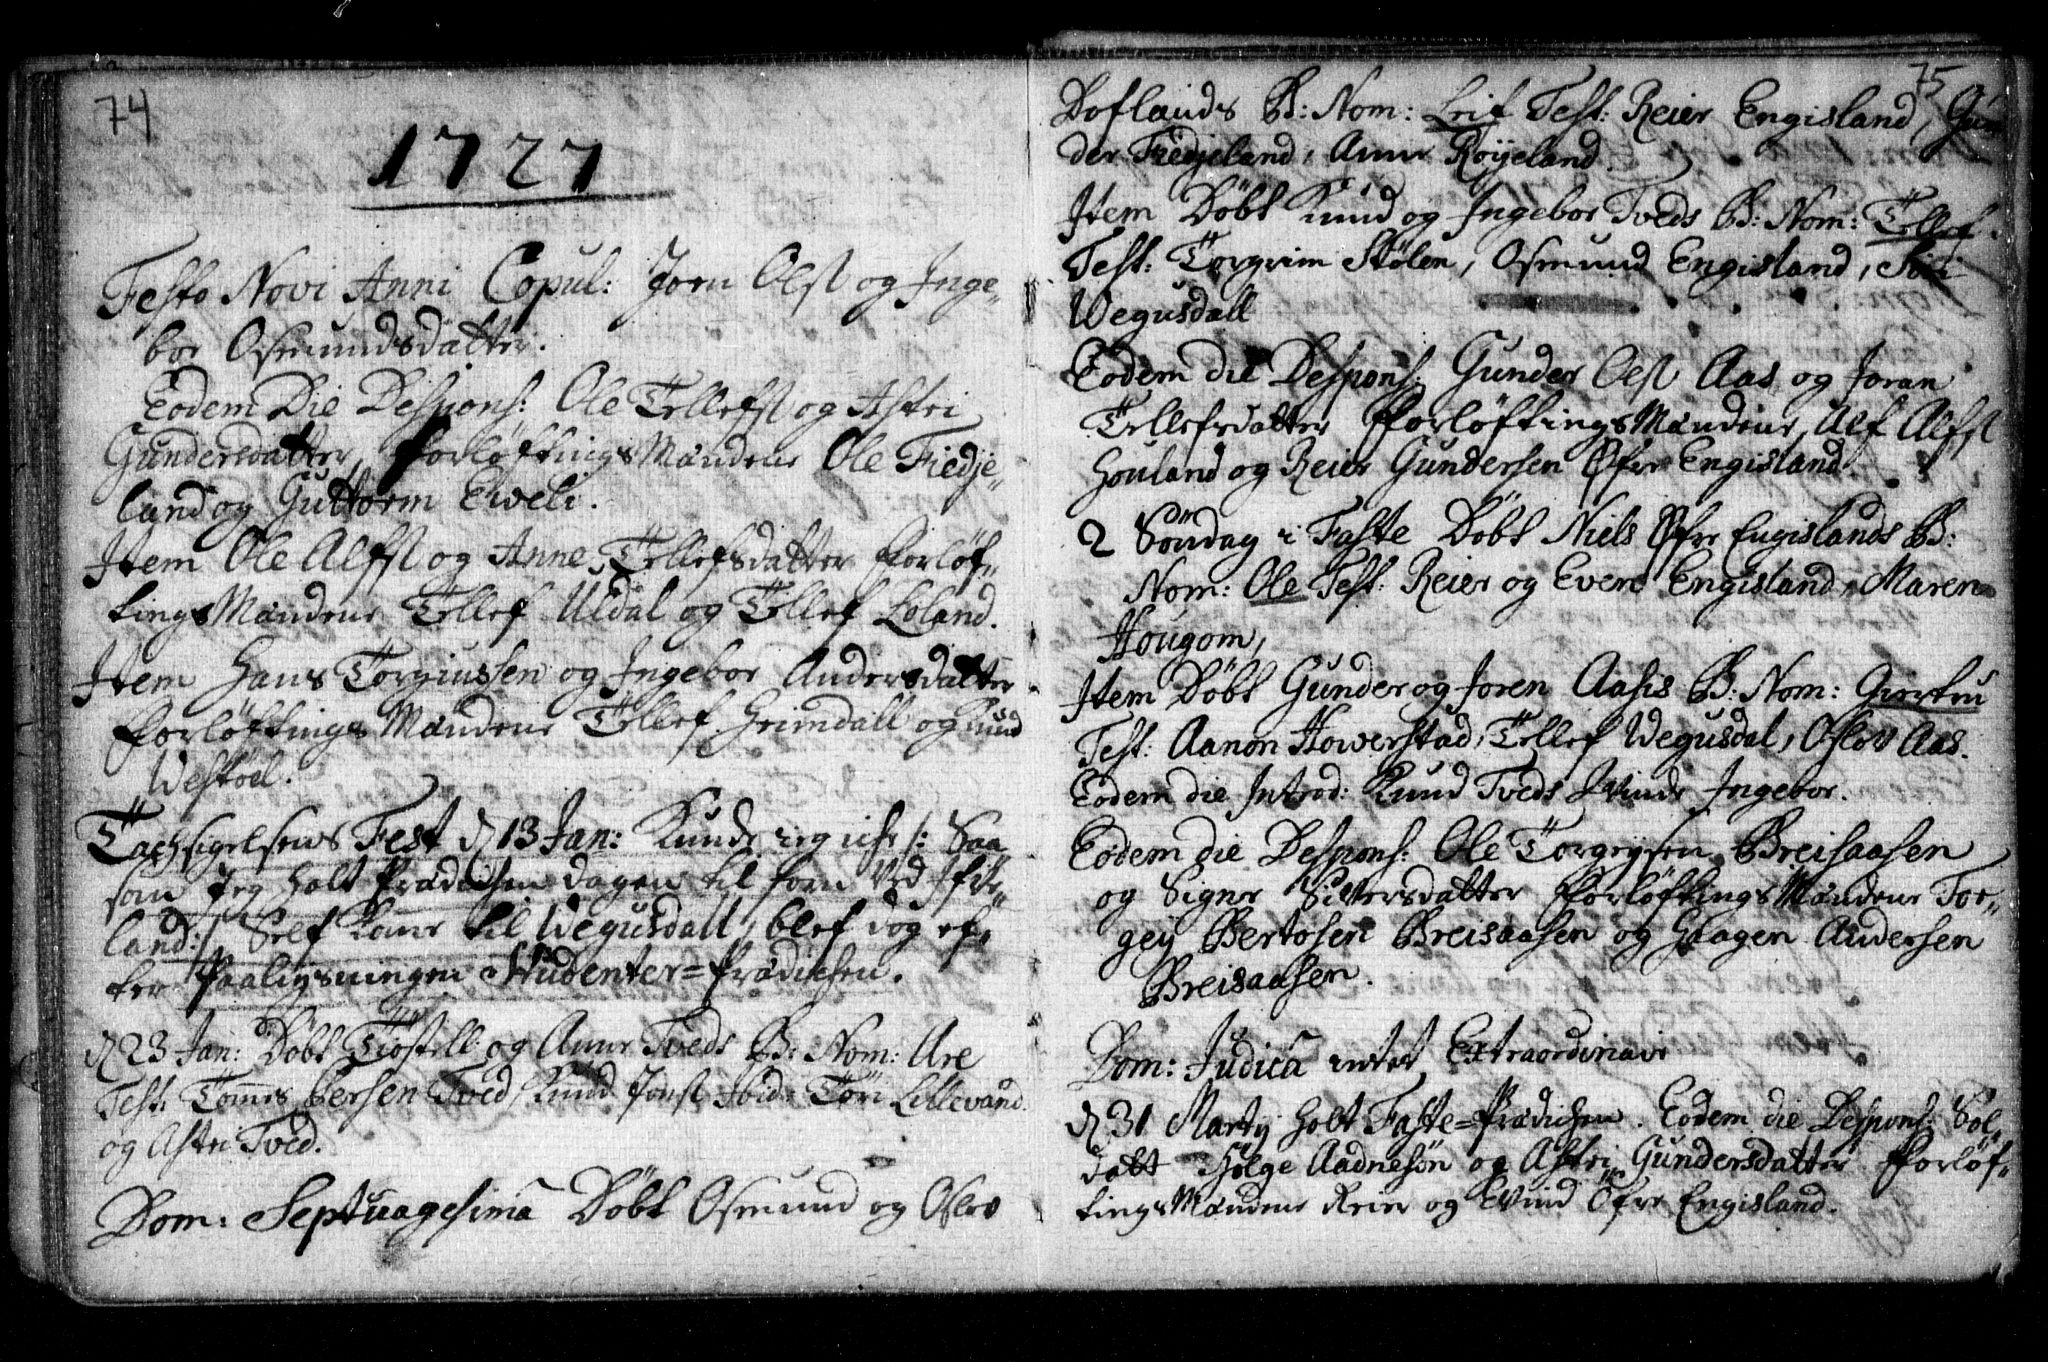 74
1727
Festo Novi Anni Copul: Jorn Olss og Inge-
bor Osmundsdatter.
Eodem Die Despons: Ole Tellefss og Astri
Gundersdatter, Forløftnings Mændene Ole Fiedje-
land og Guttorm Eveli.
Item Ole Alfss og Anne Tellefsdatter Forløf-
tnings Mændene Tellef Uldal og Tellef Loland.
Item Hans Torgiussen og Ingebor Andersdatter
Forløftnings Mændene Tellef Heimdall og Knud
Westøel.
Tachsigelsens Fest d 13 Jan: Kunde ieg iche /: Saa
som Jeg holt Prædichen dagen til forn ved
land:/ Self komme til Wegusdall, blef dog ef-
ter Paalysningen Studenter=Prædichen.
d 23 Jan: Døbt Tostell og Anne Tveds B: Nom: Are
Test: Tommes Persen Tved, Knud Jonss ibid: Tori Lillevand
og Astri Tved.
Dom: Septuagesima Døbt Osmund og Oslov
75
Doflands B: Nom: Leif Test: Reier Engisland, Gun-
der Fiedjeland, Anne Røyeland
Item Døbt Knud og Ingebor Tveds B: Nom: Tellef.
Test: Torgrim Stølen, Osmund Engisland, Siri
Wegusdall
Eodem die Despons: Gunder Olss Aas og Joran
Tellefsdatter Forløftnings Mændene, Alf Alfss
Houland og Reier Gundersen Øfre Engisland.
2 Søndag i Faste Døbt Niels Øfre Engislands B:
Nom: Ole Test: Reier og Even Engisland, Maren
Hougom,
Item Døbt Gunder og Joren Aasis B: Nom: Giertru
Test: Aanon Howerstad, Tellef Wegusdal, Oslov Aas.
Eodem die Introd: Knud Tveds Qvinde Ingebor.
Eodem die Despons: Ole Torgeysen Breisaasen
og Signe Siversdatter Forløftnings Mændene Tor-
gey Bertosen Breisaasen og Haagen Andersen
Breisaasen.
Dom: Judica intet Extraordinair
d 31 Martij holt Faste=Prædichen. Eodem die Despons: Sol-
datt Helge Aadnesøn og Astri Gundersdatter Forløf-
tnings Mændene Reier og Evind Øfre Engisland.